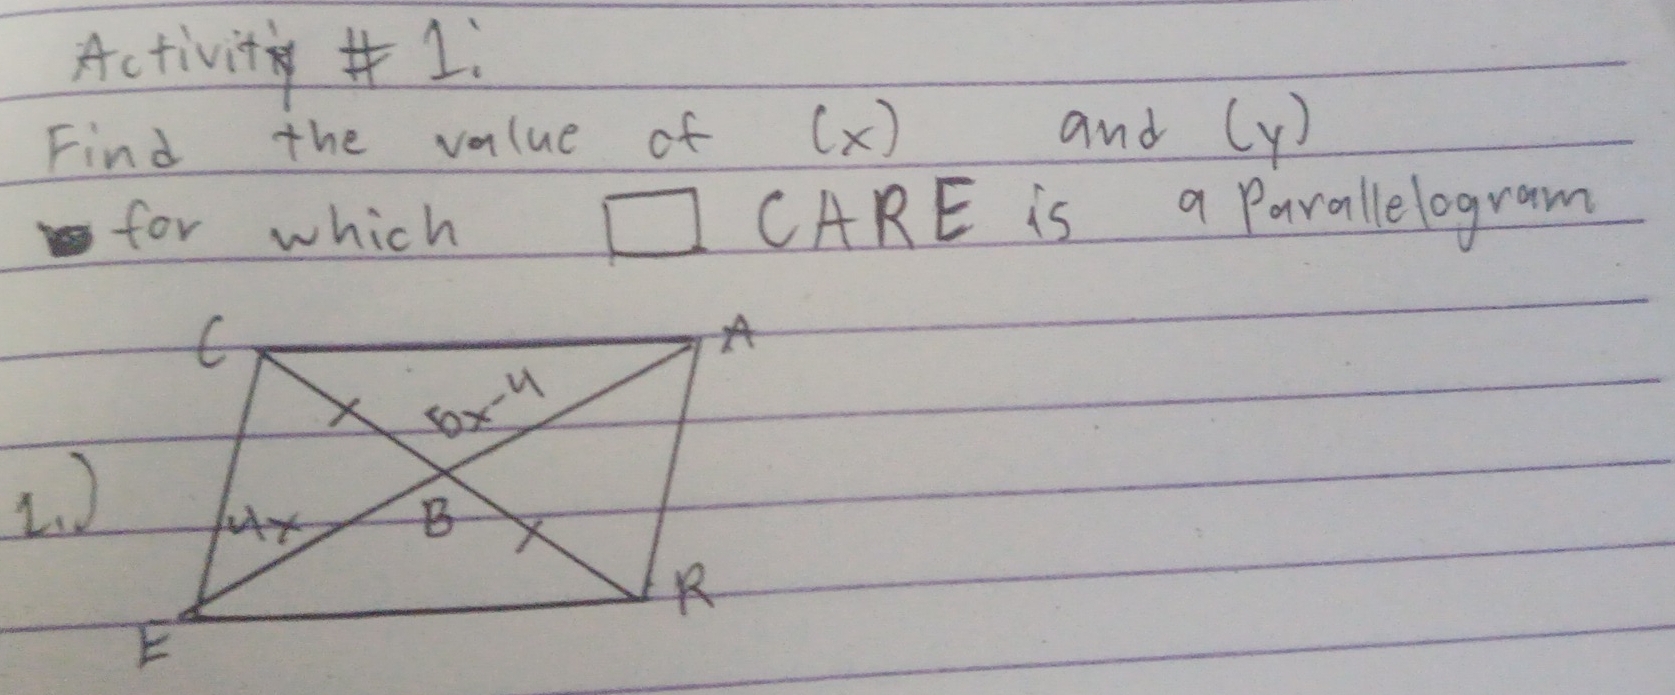 Activity # 1:
Find the value of (x) and (y)
for which □ CARE is a Parallelogram
C A
5x-4
1.)
4x B
R
E